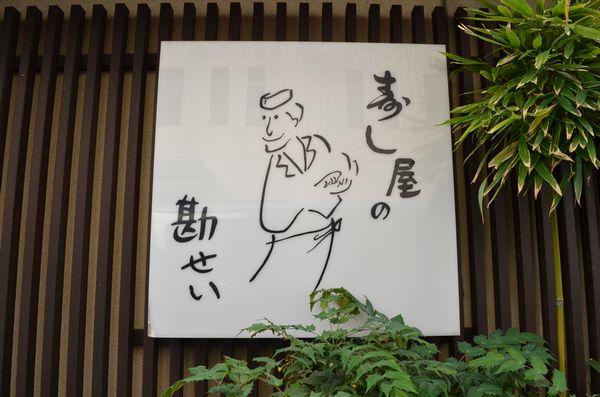 寿し屋の
勘せい